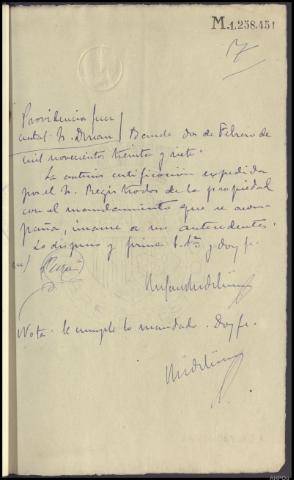 M.1.258.451
Providencia Juez
Bande dos de Febrero de
mil novecientos treinta y siete.
La anterior certificación expedida
por el Sr. Registrador de la propiedad
con el mandamiento que se acom-
paña, únase a sus antecedentes.
Lo dispuso y firma S. Sª y doy fe.
Nota. Se cumple lo mandado. Doy fe.